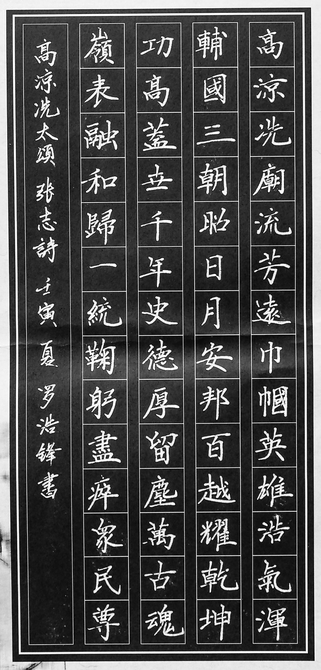 高涼冼廟流芳遠巾幗英雄浩氣渾
輔國三朝昭日月安邦百越耀乾坤
功高蓋世千年史德厚留塵萬古魂
嶺表融和歸一統鞠躬盡瘁眾民尊
高凉冼太頌 张志詩 壬寅夏 罗浩鋒書